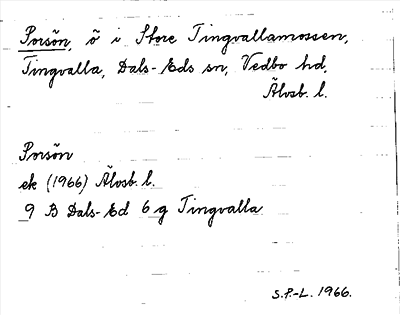 Porsön, ö i Store Tingvallamossen,
Tingvalla, Dals-Eds sn, Vedbo hd,
Älvsb. l.
Porsön
ek (1966) Älvsb. l.
9 B Dals-Ed 6 g Tingvalla
S.P.-L. 1966.